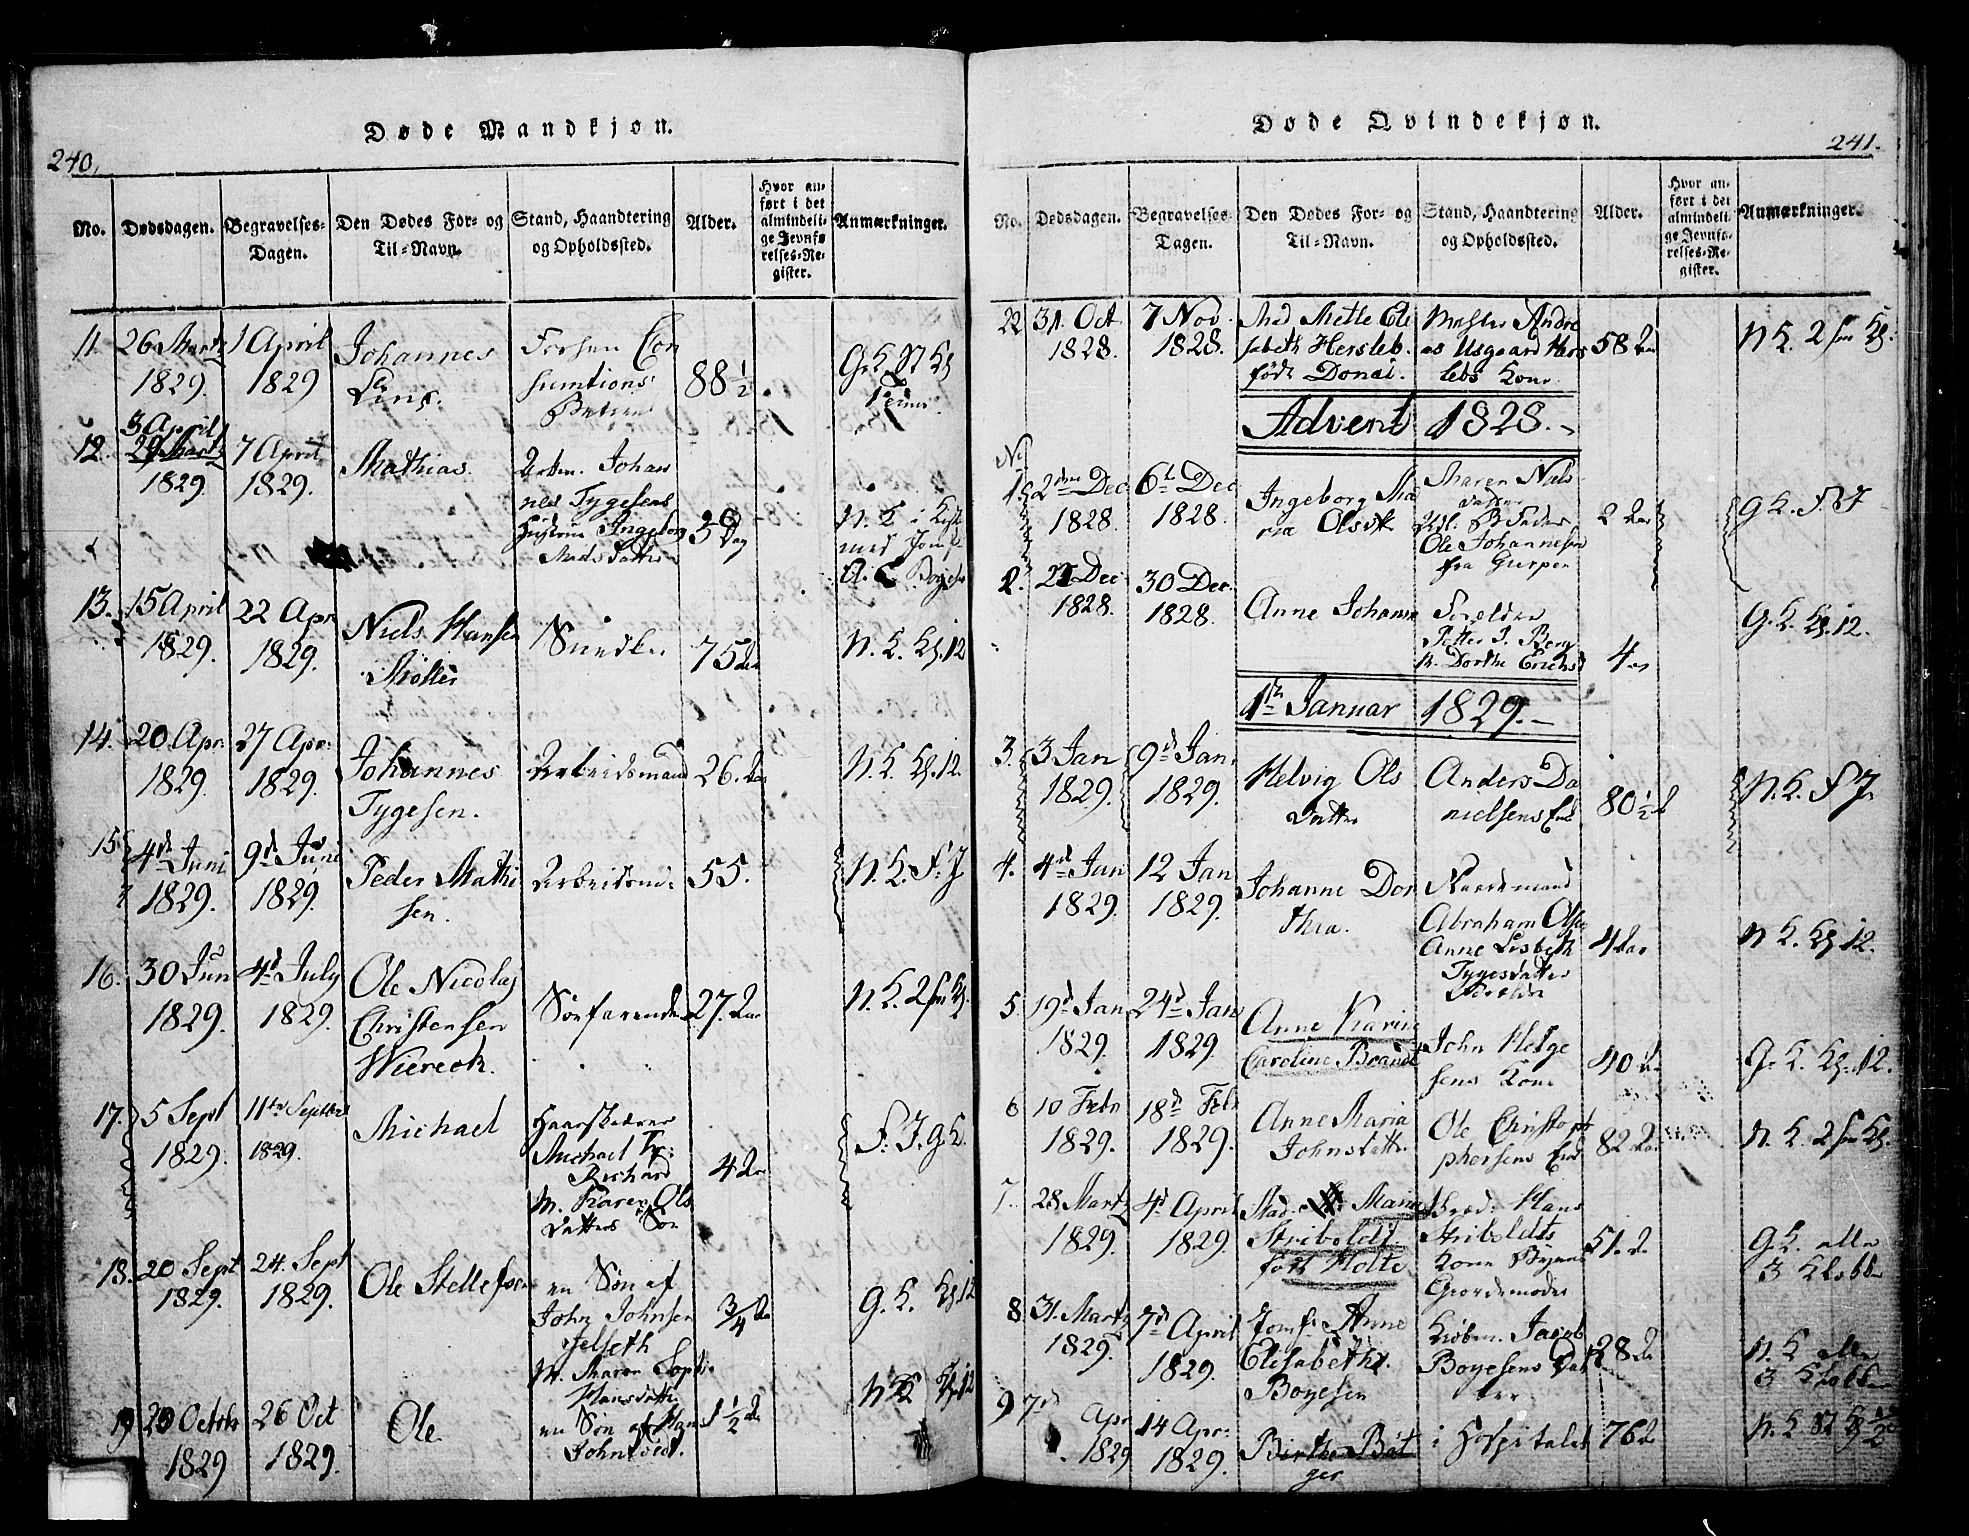 240.
Døde Mandkjøn.
No. Dødsdagen. Begravelses-Dagen. Den Dødes For- og Til-Navn. Stand, Haandtering og Opholdssted. Alder. Hvor anført i det almindelige Jevnførelses-Register. Anmærkninger.
11. 26 Martz 1829. 1 April 1829 Johannes Lins. Consumtions 88 1/2.
12. 3 April 29 Martz 1829. 7 April 1829. Mathias. Arbm. Johannes Tygesens Hustrue Ingeborg Madsdatter 3 Dag N. K. i Kiste med Jomf. A. E. Boyesen
13. 15 April 1829. 22 Apr 1829. Niels Hansen Møller Snedker 75 Aar N. K. Kl. 12
14. 20 Apr. 1829. 27 Apr. 1829. Johannes Tygesen. Arbeidsmand 26. Aar N. K. Kl. 12.
15 4d Juni 1829. 9d Juni 1829. Peder Mathisen. Arbeidsm. 55. N. K. F. J
16. 30 Jun 1829. 4d July 1829. Ole Nicolaj Christensen Wiereck. Søefarende 27. Aar N. K. 2 sm Kl.
17. 5 Sept 1829. 11te Septbr 1829. Michael Michael Fr: Richard M. Karen Ols Datters Søn 4 Aar F. J. G. K.
18. 20 Sept 1829. 24. Sept 1829. Ole Stellefsen en Søn af John Johnsen Jelseth M. Maren Sophie Hansdatter 3/4 Aar G. K. Kl. 12
19 20 Octobr 1829 26 Oct 1829. Ole en Søn af Hans 1 1/2 Aar N K Kl. 12
Døde Qvindekjøn.
241.
No. Dødsdagen. Begravelses-Dagen. Den Dødes For- og Til-Navn. Stand, Haandtering og Opholdssted. Alder. Hvor anført i det almindelige Jevnførelses-Register. Anmærkninger.
22 31. Oct 1828. 7 Nov. 1828. Mad Mette Elisabeth Hersleb. født Donai. Andreas Usgaard Herslebs Kone 58 Aar N K. 2 sm Kl.
Advent 1828.
No
1 2den Dec 1828. 6te Dec 1828. Ingeborg Maria Olsdt Maren Nielsdatter Ole Johannesen fra Gierpen 2 Aar G K. F. J
2. 27 Dec 1828. 30 Dec. 1828. Anne Johanne Forældre Petter J. Berg & Dorthe Erichsd 4 G. K. Kl. 12.
1te Januar 1829.
3. 3 Jan 1829. 9d Jan. 1829. Helvig Ols Datter Anders Danielsens Enke 80 1/2 A N. K. F J.
4. 4d Jan 1829. 12 Jan 1829. Johanne Dorthea. Abraham Olsen Anne Lisbeth Tygesdatter Forældre 4 Aar N K. Kl. 12.
5. 19d Jan 1829. 24d Jan 1829. Anne Karine Caroline Brandt John Helgesens Kone 40 A G. K. Kl. 12.
6 10 Febr 1829. 18d Febr 1829. Anne Maria Johnsdatter Ole Christophersens Enke 82 Aar N. K. 2 sm Kl.
7. 28 Martz 1829. 4d April 1829. Mad. Marie Striboldt. født Holte Hans Striboldts Kone Byens Giordemoder 51. A G. K. alle 3 Klokker
8 31. Martz 1829. 7d April 1829. Jomf: Anne Elisabeth Boyesen Kiøbm. Jacob Boyesens Datter 28 A N. K alle 3 Klokker
9 7de Apr 1829 14 Apr. 1829. Birthe Bøtger i Hospitalet 76 A N. K